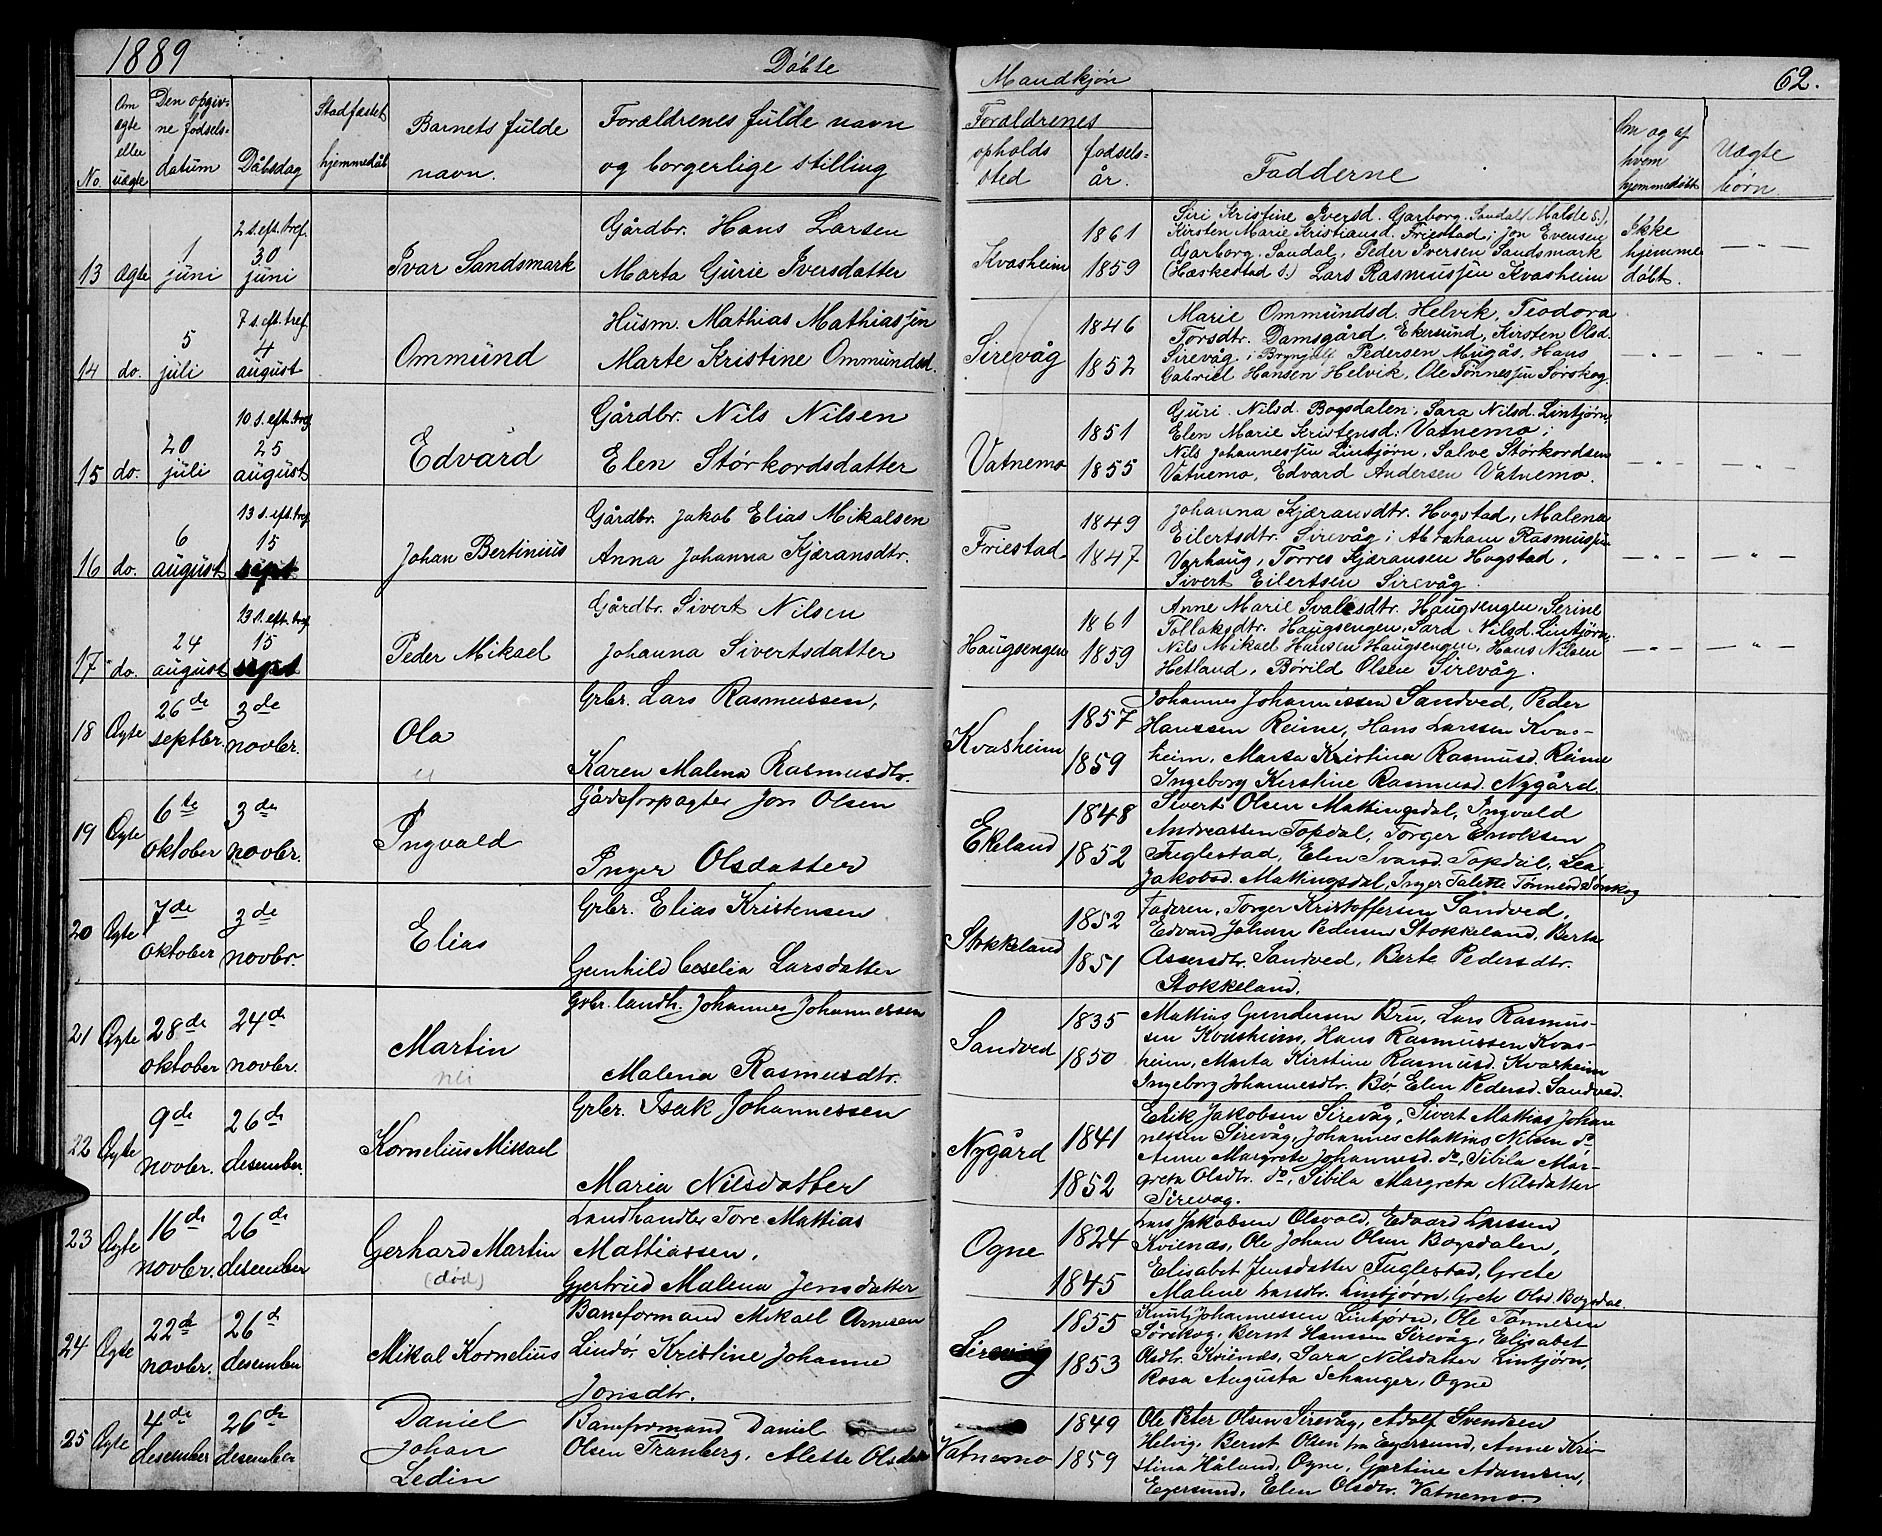 1889
Döbte
Mandkjön
62.
No.
Om ægte eller uægte
Den opgivne födselsdatum
Dåbsdag
Stadfæstet hjemmedåb
Barnets fulde navn.
Forældrenes fulde navn og borgerlige stilling
Forældrenes
opholdssted
födselsår.
Fadderne
Om og af hvem hjemmedöbt
Uægte börn
13 ægte 1 juni 2 s. eft. tref. 30 juni Ivar Sandsmark
Gårdbr. Hans Larsen
Marta Gurie Iversdatter
Kvasheim 1861 1859
Siri Kristine Iversd. Garborg, Sandal (Malde s.),
Kirsten Marie Kristiansd. Friestad; Jon Evensen
Garborg, Sandal, Peder Iversen Sandsmark
(Hæskestad s.) Lars Rasmussen Kvasheim
Ikke hjemmedöbt.
14 do. 5 juli 7 s. eft. tref. 4 august Ommund
Husm. Mathias Mathiassen
Marte Kristine Ommundsd.
Sirevåg 1846 1852
Marie Ommundsd. Helvik, Teodora
Torsdtr. Damsgård, Ekersund, Kirsten Olsd.
Sirevåg; Brynjulf Pedersen Mugås, Hans
Gabriel Hansen Helvik, Ole Tönnessen Sörskog.
15 do. 20 juli 10 s. eft. tref. 25 august Edvard
Gårdbr. Nils Nilsen
Elen Störkordsdatter
Vatnemo 1851 1855
Guri Nilsd. Bogsdalen, Sara Nilsd. Lintjörn,
Elen Marie Kristensd: Vatnemo;
Nils Johannessen Lintjörn, Salve Störkordsen
Vatnemo, Edvard Andersen Vatnemo.
16 do. 6 august 13 s. eft. tref. 15 sept Johan Bertinius
Gårdbr. Jakob Elias Mikalsen
Anna Johanna Kjæransdtr.
Friestad 1849 1847
Johanna Kjæransdtr. Hogstad, Malena
Eilertsdtr. Sirevåg; Abraham Rasmussen
Varhaug, Torres Kjæransen Hogstad,
Sivert Eilertsen Sirevåg.
17 do. 24 august 13 s. eft. tref. 15 sept Peder Mikael
Gårdbr. Sivert Nilsen
Johanna Sivertsdatter
Haugsengen 1861 1859
Anne Marie Svalesdtr. Haugsengen, Serine
Tollaksdtr. Haugsengen, Sara Nilsd. Lintjörn;
Nils Mikael Hansen Haugsengen, Hans Nilsen
Hetland, Börild Olsen Sirevåg.
18 Ægte 26de septbr. 3de novbr. Ola
Grbr. Lars Rasmussen,
Karen Malena Rasmusdtr.
Kvasheim 1857 1859
Johannes Johannissen Sandved, Peder
Hanssen Reime, Hans Larssen Kvas-
heim, Marta Kristina Rasmusd. Reime
Ingeborg Kirstine Rasmusd. Nygård
19 Ægte 6te oktober 3de novbr. Ingvald
Gådsforpagter Jon Olsen
Inger Olsdatter
Ekeland 1848 1852
Sivert Olsen Mattingsdal, Ingvald
Andreassen Topdal, Torger Enoksen
Fuglestad, Elen Ivarsd. Topdal, Lea
Jakobsd. Mattingsdal, Inger Talette Tönnesd Sörskog
20 Ægte 7de oktober 3de novbr. Elias
Grbr. Elias Kristensen
Gunhild Ceselia Larsdatter
Stokkeland 1852 1851
Faderen, Torger Kristoffersen Sandved,
Edvard Johan Pedersen Stokkeland, Berta
Assersdtr. Sandved, Berte Pedersdtr.
Stokkeland.
21 Ægte 28de oktober 24de novbr. Martin
Grbr. landh. Johannes Johannessen
Malena Rasmusdtr.
Sandved 1835 1850
Mattias Gundersen Bru, Lars Rasmus-
sen Kvasheim, Hans Rasmussen Kvas-
heim, Marta Kirstine Rasmusd. Kvasheim
Ingeborg Johannesdtr. Bö Elen Pedersd. Sandved.
22 Ægte 9de novbr. 26de desember Kornelius Mikael
Grbr. Isak Johannessen
Maria Nilsdatter
Nygård 1841 1852
Erik Jakobsen Sirevåg, Sivert Mattias Johan
nessen Sirevåg, Johannes Mattias Nilsen do
Anne Margrete Johannesd. do, Sibila Mar-
greta Olsdtr. do, Sibila Margreta Nilsdatter
Sirevåg.
23 Ægte 16de novbr. 26de desember Gerhard Martin (död)
Landhandler Tore Mattias
Mattiassen,
Gjertrud Malena Jensdatter
Ogne 1824 1845
Lars Jakobsen Olsvold, Edvard Larssen
Kviенæs, Ole Johan Olsen Bogsdalen,
Elisabet Jensdatter Fuglestad, Grete
Malene Larsdtr. Lintjörn, Grete Olsd. Bogsdal.
24 Ægte 22de novbr. 26de desember Mikal Kornelius
Baneformand Mikael Arnesen
Lindö, Kristine Johanne
Jonsdtr.
Sirevåg 1855 1853
Knut Johannessen Lintjörn, Ole Tönnesen
Sörskog, Bernt Hanssen Sirevåg, Elisabet
Olsdtr. Kvienæs, Sara Nilsdatter Lintjörn,
Rosa Augusta Schanger, Ogne
25 Ægte 4de desember 26de desember Daniel Johan Ledin
Baneformand Daniel
Olsen Tranberg, Alette Olsdatter
Vatnemo 1849 1859
Ole Peter Olsen Sirevåg, Adolf Svendsen
Helvig, Bernt Olsen fra Egersund, Anne Kri-
stina Håland, Ogne, Gjertine Adamsen,
Egersund, Elen Olsdtr. Vatnemo.